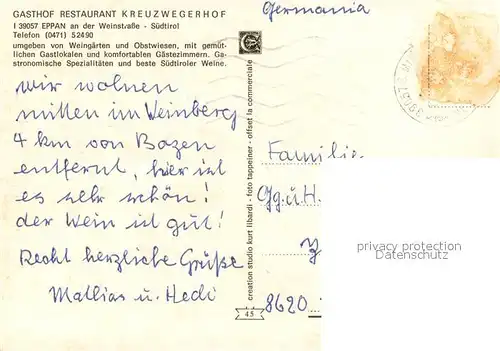 GASTHOF RESTAURANT KREUZWEGERHOF
I 39057 EPPAN an der Weinstraße - Südtirol
Telefon (0471) 52490
umgeben von Weingärten und Obstwiesen, mit gemüt-
lichen Gastlokalen und komfortablen Gästezimmern. Ga-
stronomische Spezialitäten und beste Südtiroler Weine.
Wir wohnen
mitten im Weinberg
4 km von Bozen
entfernt, hier ist
es sehr schön!
der Wein ist gut!
Recht herzliche Grüße
Mathias u. Hedi
creation studio kurt libardi - foto tappeiner - offset la commerciale
45
Germania
39057
Familie
Gg. u. H.
8620
privacy protection
Datenschutz